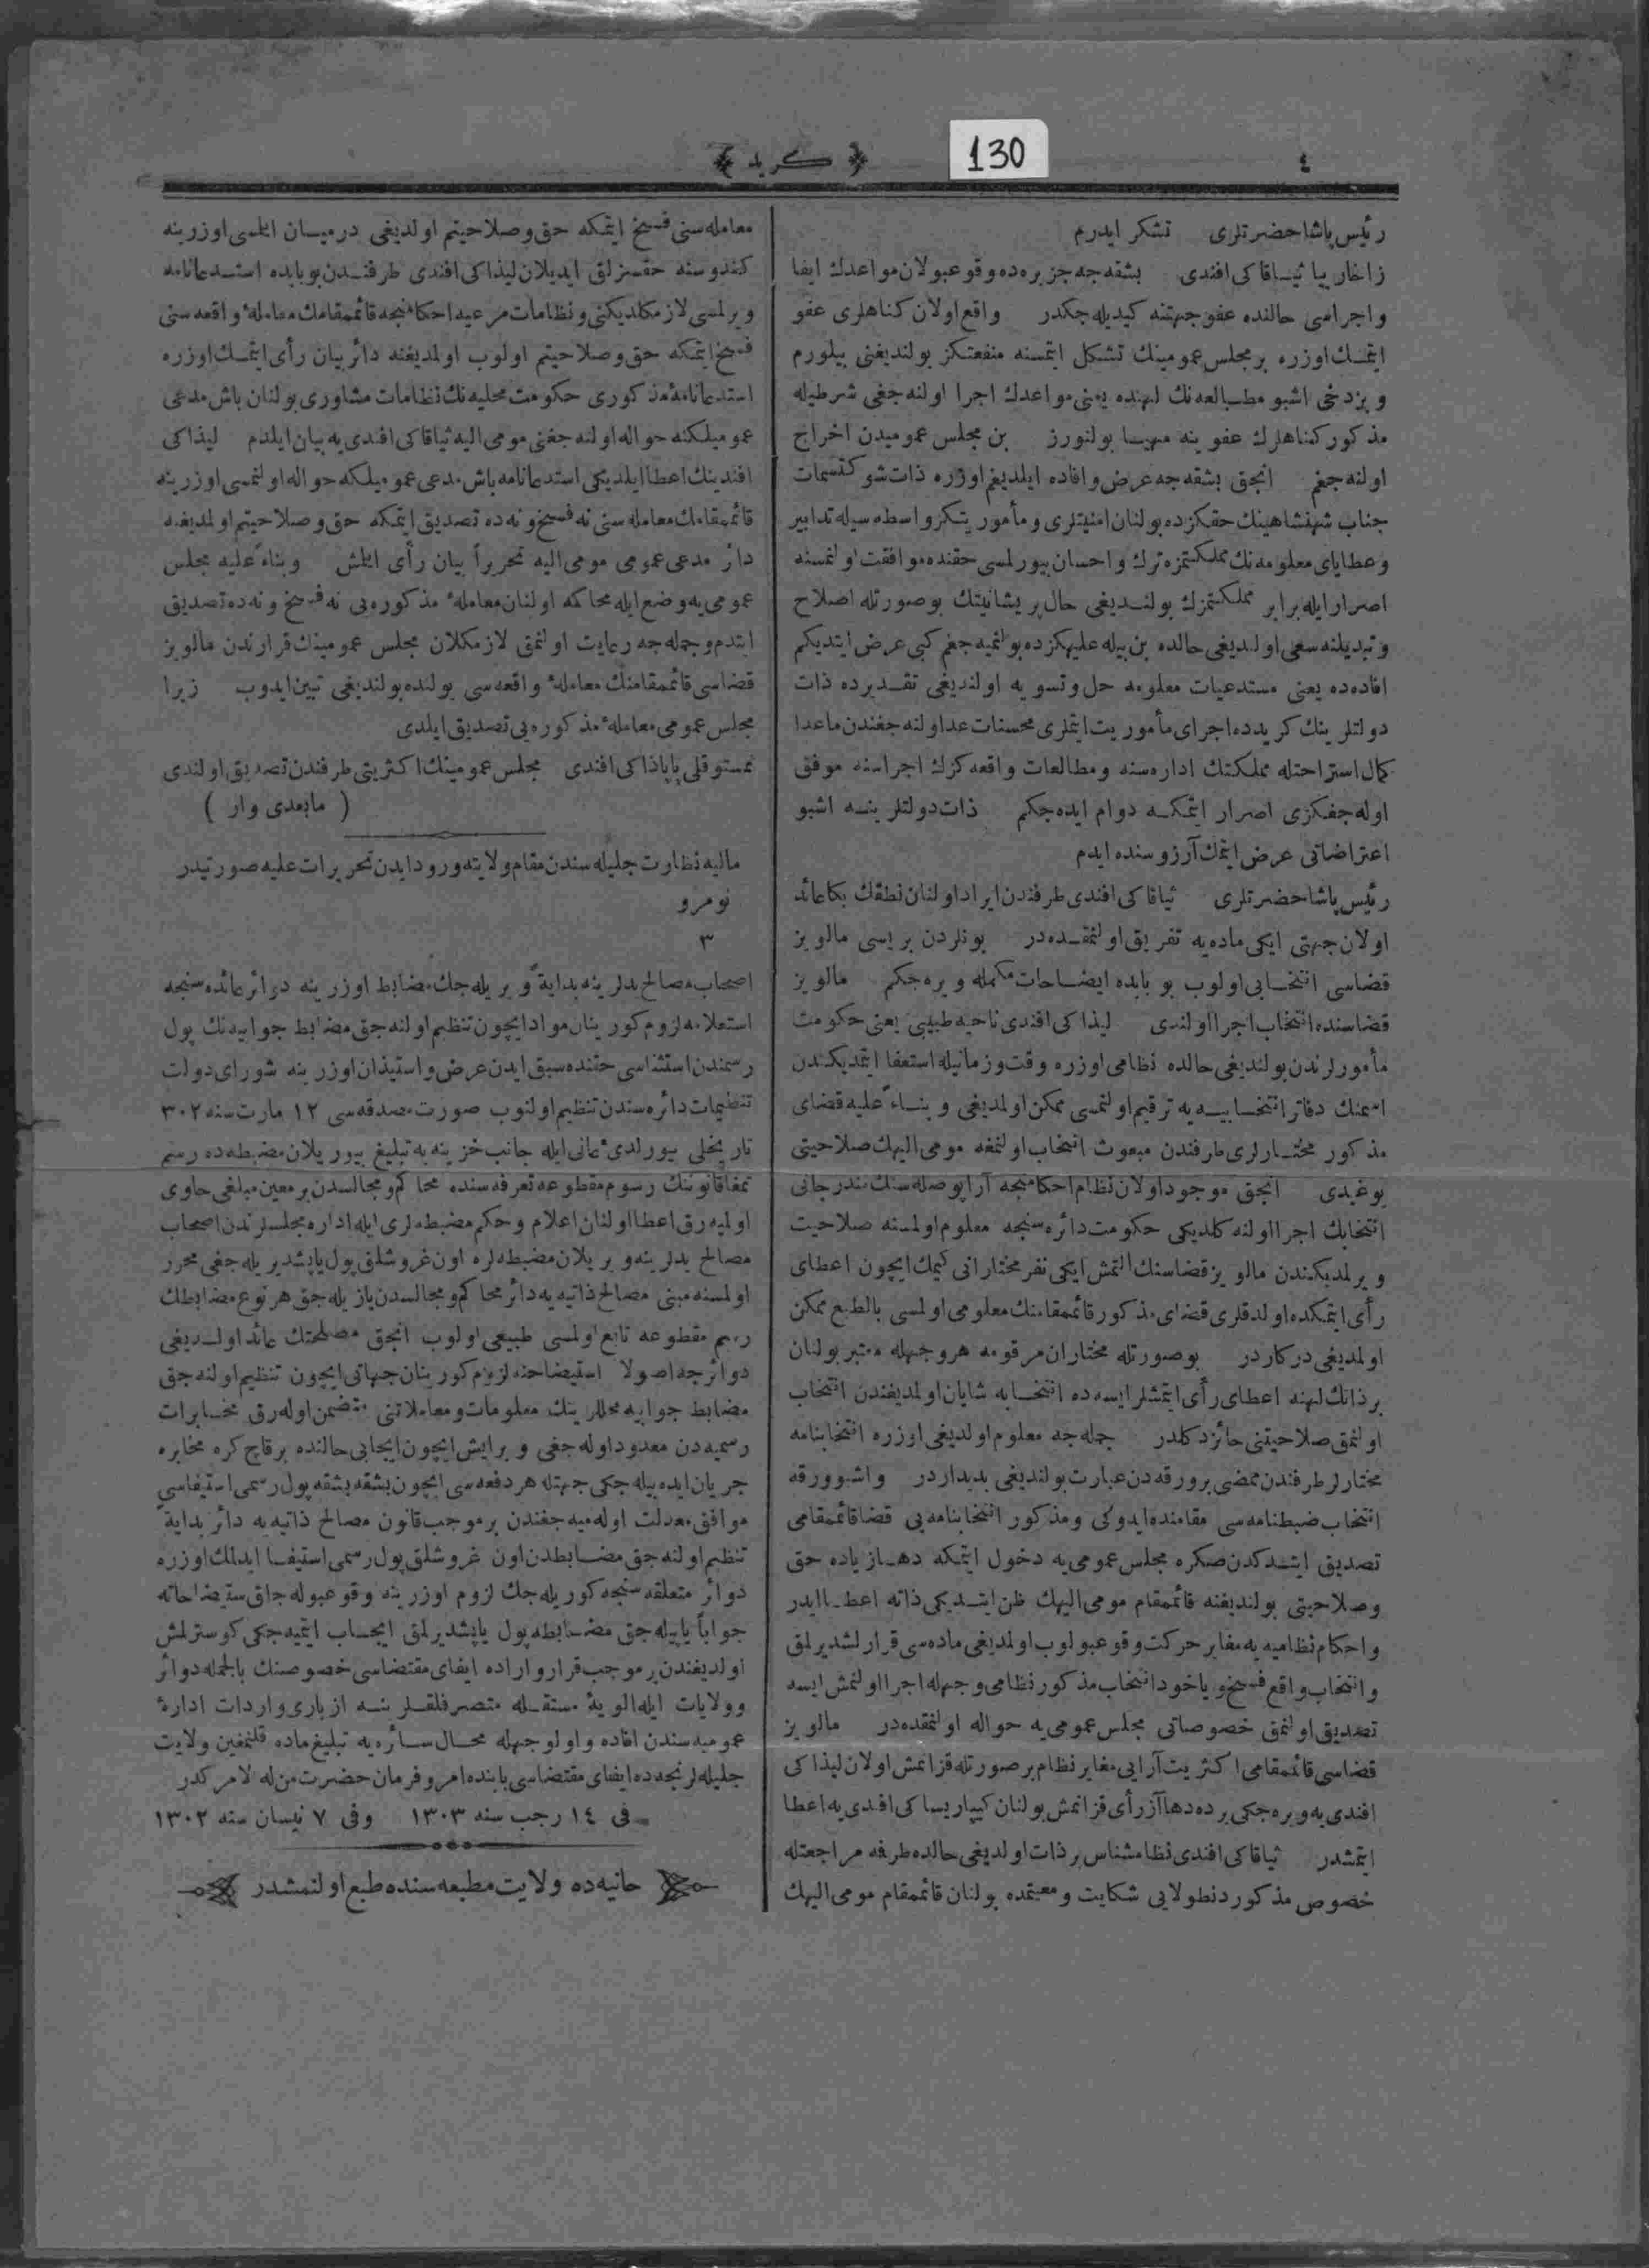 ٤
130
﴿ كريد ﴾
رئيس پاشا حضرتلری تشكر ايدرم
زاخاريا ثياقاكی افندی بشقه جه جزيره ده وقوعبولان مواعدك ايفا
و اجراسی حالنده عفو جهتنه كيديله جكدر واقع اولان كناهلری عفو
ايتمك اوزره بر مجلس عمومينك تشكل ايتمسنه منفعتكز بولنديغنی بيلورم
و بزدخی اشبو مطالعه نك لهنده يعنی مواعدك اجرا اولنه جغی شرطيله
مذكور كناهلرك عفوينه مهيا بولنورز بن مجلس عموميدن اخراج
اولنه جغم انجق بشقه جه عرض و افاده ايلديغم اوزره ذات شوكتسمات
جناب شهنشاهينك حقكزده بولنان امنيتلری و مأموريتكز واسطه سيله تدابير
و عطايای معلومه نك مملكتمزه ترك و احسان بيورلمسی حقنده موافقت اولنمسنه
اصرار ايله برابر مملكتمزك بولنديغی حال پريشانيتك بو صورتله اصلاح
و تبديلنه سعی اولديغی حالده بن بيله عليهكزده بولنميه جغم كبی عرض ايتديكم
افاده ده يعنی مستدعيات معلومه حل و تسويه اولنديغی تقديرده ذات
دولتلرينك كريدده اجرای مأموريت ايتملری محسنات عد اولنه جغندن ماعدا
كمال استراحتله مملكتك اداره سنه و مطالعات واقعه كزك اجراسنه موفق
اوله جغكزی اصرار ايتمكه دوام ايده جكم ذات دولتلرينه اشبو
اعتراضاتی عرض ايتمك آرزوسنده ايدم
رئيس پاشا حضرتلری ثياقاكی افندی طرفندن ايراد اولنان نطقك بكا عائد
اولان جهتی ايكی ماده يه تفريق اولنمقده در بونلردن بريسی مالويز
قضاسی انتخابی اولوب بو بابده ايضاحات مكمله ويره جكم مالويز
قضاسنده انتخاب اجرا اولندی ليذاكی افندی ناحيه طبيبی يعنی حكومت
مأمورلرندن بولنديغی حالده نظامی اوزره وقت و زمانيله استعفا ايتديكندن
اسمنك دفاتر انتخابيه يه ترقيم اولنمسی ممكن اولمديغی و بناءً عليه قضای
مذكور مختارلری طرفندن مبعوث انتخاب اولنمغه مومی اليهك صلاحيتی
يوغيدی انجق موجود اولان نظام احكامنجه آرا پوصله سنك مندرجاتی
انتخابك اجرا اولنه كلديكی حكومت دائره سنجه معلوم اولمسنه صلاحيت
ويرلمديكندن مالويز قضاسنك التمش ايكی نفر مختارانی كيمك ايچون اعطای
رأی ايتمكده اولدقلری قضای مذكور قائممقامنك معلومی اولمسی بالطبع ممكن
اولمديغی دركاردر بو صورتله مختاران مرقومه هر وجهله معتبر بولنان
بر ذاتك لهنه اعطای رأی ايتمشلر ايسه ده انتخابه شايان اولمديغندن انتخاب
اولنمق صلاحيتنی حائز دكلدر جمله جه معلوم اولديغی اوزره انتخابنامه
مختارلر طرفندن ممضی بر ورقه دن عبارت بولنديغی بديداردر و اشبو ورقه
انتخاب ضبطنامه سی مقامنده ايدوكی و مذكور انتخابنامه يی قضا قائممقامی
تصديق ايتدكدن صكره مجلس عمومی يه دخول ايتمكه دها زياده حق
و صلاحيتی بولنديغنه قائممقام مومی اليهك ظن ايتديكی ذاته اعطا ايدر
و احكام نظاميه يه مغاير حركت وقوعبولوب اولمديغی ماده سی قرارلشديرلمق
و انتخاب واقع فسخ و ياخود انتخاب مذكور نظامی وجهله اجرا اولنمش ايسه
تصديق اولنمق خصوصاتی مجلس عمومی يه حواله اولنمقده در مالويز
قضاسی قائممقامی اكثريت آرايی مغاير نظام بر صورتله قزانمش اولان ليذاكی
افندی يه ويره جكی يرده دها آز رأی قزانمش بولنان كيپاريساكی افندی يه اعطا
ايتمشدر ثياقاكی افندی نظامشناس بر ذات اولديغی حالده طرفه مراجعتله
خصوص مذكوردنطولايی شكايت و معيتمده بولنان قائممقام مومی اليهك
معامله سنی فسخ ايتمكه حق و صلاحيتم اولديغی درميان ايلمسی اوزرينه
كندوسنه حقسزلق ايديلان ليذاكی افندی طرفندن بو بابده استدعانامه
ويرلمسی لازمكلديكنی و نظامات مرعيه احكامنجه قائممقامك معاملهٔ واقعه سنی
فسخ ايتمكه حق و صلاحيتم اولوب اولمديغنه دائر بيان رأی ايتمك اوزره
استدعانامهٔ مذكوری حكومت محليه نك نظامات مشاوری بولنان باش مدعی
عموميلكنه حواله اولنه جغنی مومی اليه ثياقاكی افندی يه بيان ايلدم ليذاكی
افندينك اعطا ايلديكی استدعانامه باش مدعی عموميلكه حواله اولنمسی اوزرينه
قائممقامك معامله سنی نه فسخ و نه ده تصديق ايتمكه حق و صلاحيتم اولمديغنه
دائر مدعی عمومی مومی اليه تحريراً بيان رأی ايلمش و بناءً عليه مجلس
عمومی يه وضع ايله محاكمه اولنان معاملهٔ مذكوره يی نه فسخ و نه ده تصديق
ايتدم و جمله جه رعايت اولنمق لازمكلان مجلس عمومينك قرارندن مالويز
قضاسی قائممقامنك معاملهٔ واقعه سی يولنده بولنديغی تبين ايدوب زيرا
مجلس عمومی معاملهٔ مذكوره يی تصديق ايلدی
ممستوقلی پاپاذاكی افندی مجلس عمومينك اكثريتی طرفندن تصديق اولندی
( مابعدی وار )
ماليه نظارت جليله سندن مقام ولايته ورود ايدن تحريرات عليه صورتيدر
نومرو
٣
اصحاب مصالح يدلرينه بدايةً ويريله جك مضابط اوزرينه دوائر عائده سنجه
استعلامه لزوم كورينان مواد ايچون تنظيم اولنه جق مضابط جوابيه نك پول
رسمندن استثناسی حقنده سبق ايدن عرض و استيذان اوزرينه شورای دولت
تنظيمات دائره سندن تنظيم اولنوب صورت مصدقه سی ١٢ مارت سنه ٣٠٢
تاريخلی بيورلدیٔ عالی ايله جانب خزينه يه تبليغ بيوريلان مضبطه ده رسم
تمغا قانوننك رسوم مقطوعه تعرفه سنده محاكم و مجالسدن بر معين مبلغی حاوی
اولميه رق اعطا اولنان اعلام و حكم مضبطه لری ايله اداره مجلسلرندن اصحاب
مصالح يدلرينه ويريلان مضبطه لره اون غروشلق پول ياپشديريله جغی محرر
اولمسنه مبنی مصالح ذاتيه يه دائر محاكم و مجالسدن يازيله جق هر نوع مضابطك
رسم مقطوعه تابع اولمسی طبيعی اولوب انجق مصلحتك عائد اولديغی
دوائرجه اصولا استيضاحنه لزوم كورينان جهاتی ايچون تنظيم اولنه جق
مضابط جوابيه محللرينك معلومات و معاملاتنی متضمن اوله رق مخابرات
رسميه دن معدود اوله جغی و بر ايش ايچون ايجابی حالنده بر قاچ كره مخابره
جريان ايده بيله جكی جهتله هر دفعه سی ايچون بشقه بشقه پول رسمی استيفاسی
موافق معدلت اوله ميه جغندن بر موجب قانون مصالح ذاتيه يه دائر بدايةً
تنظيم اولنه جق مضابطدن اون غروشلق پول رسمی استيفا ايدلمك اوزره
دوائر متعلقه سنجه كوريله جك لزوم اوزرينه وقوعبوله جاق ستيضاحاته
جواباً ياپيله جق مضابطه پول ياپشديرلمق ايجاب ايتميه جكی كوسترلمش
اولديغندن بر موجب قرار و اراده ايفای مقتضاسی خصوصنك بالجمله دوائر
و ولايات ايله الويهٔ مستقله متصرفلقلرينه ازباری واردات ادارهٔ
عموميه سندن افاده و اولوجهله محال سائره يه تبليغ ماده قلنمغين ولايت
جليله لرنجه ده ايفای مقتضاسی بابنده امر و فرمان حضرت من له الامركدر
فی ١٤ رجب سنه ١٣٠٣ وفی ٧ نيسان سنه ١٣٠٢
حانيه ده ولايت مطبعه سنده طبع اولنمشدر